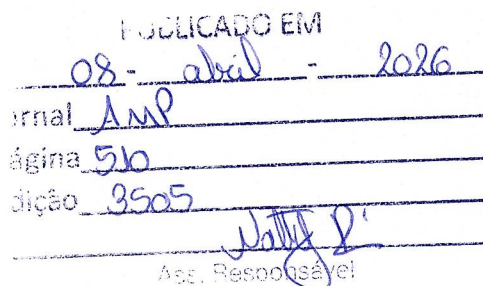 PUBLICADO EM
08 - abril - 2026
ornal AMP
ágina 510
dição 3505
Ass. Responsável